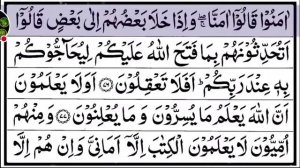 اٰمَنُوْا قَالُوْۤا اٰمَنَّا ۖۚ وَاِذَا خَلَا بَعْضُهُمْ اِلٰى بَعْضٍ قَالُوْۤا
اَتُحَدِّثُوْنَهُمْ بِمَا فَتَحَ اللّٰهُ عَلَيْكُمْ لِيُحَآجُّوْكُمْ
بِهٖ عِنْدَ رَبِّكُمْ ؕ اَفَلَا تَعْقِلُوْنَ ﴿۷۶﴾ اَوَلَا يَعْلَمُوْنَ
اَنَّ اللّٰهَ يَعْلَمُ مَا يُسِرُّوْنَ وَمَا يُعْلِنُوْنَ ﴿۷۷﴾ وَمِنْهُمْ
اُمِّيُّوْنَ لَا يَعْلَمُوْنَ الْكِتٰبَ اِلَّاۤ اَمَانِيَّ وَاِنْ هُمْ اِلَّا